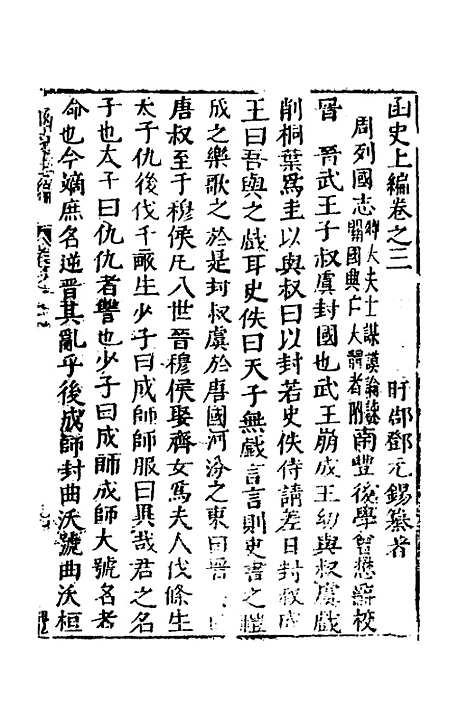 函史上編卷之三 盱郡鄧元錫纂著
周列國志 卿大夫士謀謨論議關國典亡大體者附 南豐後學曾懋爵校
晉 晉武王子叔虞封國也武王崩成王幼與叔虞戲
削桐葉爲圭以與叔曰以封若史佚侍請差日封叔成
王曰吾與之戲耳史佚曰天子無戲言言則史書之禮
成之樂歌之於是封叔虞於唐國河汾之東曰
唐叔至于穆侯凡八世晉穆侯娶齊女爲夫人伐條生
太子仇後伐千畝生少子曰成師師服曰異哉君之名
子也太子曰仇仇者讐也少子曰成師成師大號名者
命也今嫡庶名逆晉其亂乎後成師封曲沃號曲沃桓